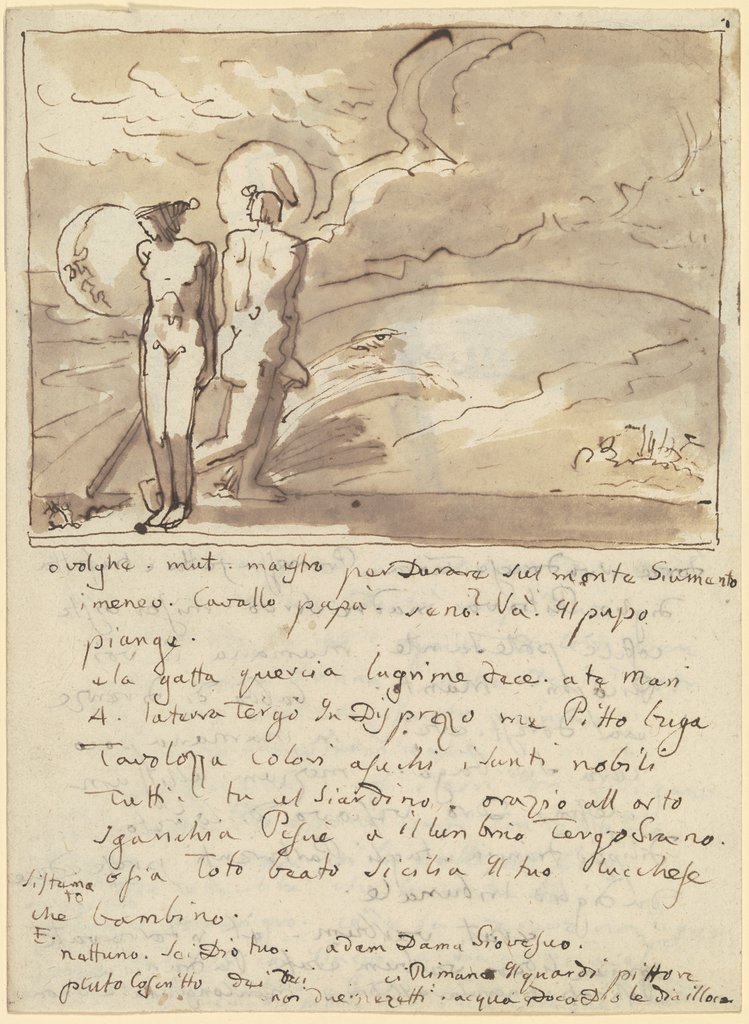 ovolghe. mut. maestro per Durare sul monte Siamento
imeneo. Cavallo papà. seno? Và. Il pupo
piange.
ela gatta quercia lagrime dece. ate Mari
A. laterra Tergo In Disprezo me Pitto briga
Tavolozza colori asechi i santi nobili
Tutti. tu al Siardino. orazio all orto
Sganchia Pesue a il lunbrio Tergo Srano.
osia Toto beato Sicilia Il tuo lucchese
sistema
to
che bambino.
E.
nattuno. Sei Dio tuo. adem Dama Siovesuo.
pluto Coscritto dei ci Rimane Il guardi pittore
noi due. pezetti. acqua Doca Dio le dia illoco